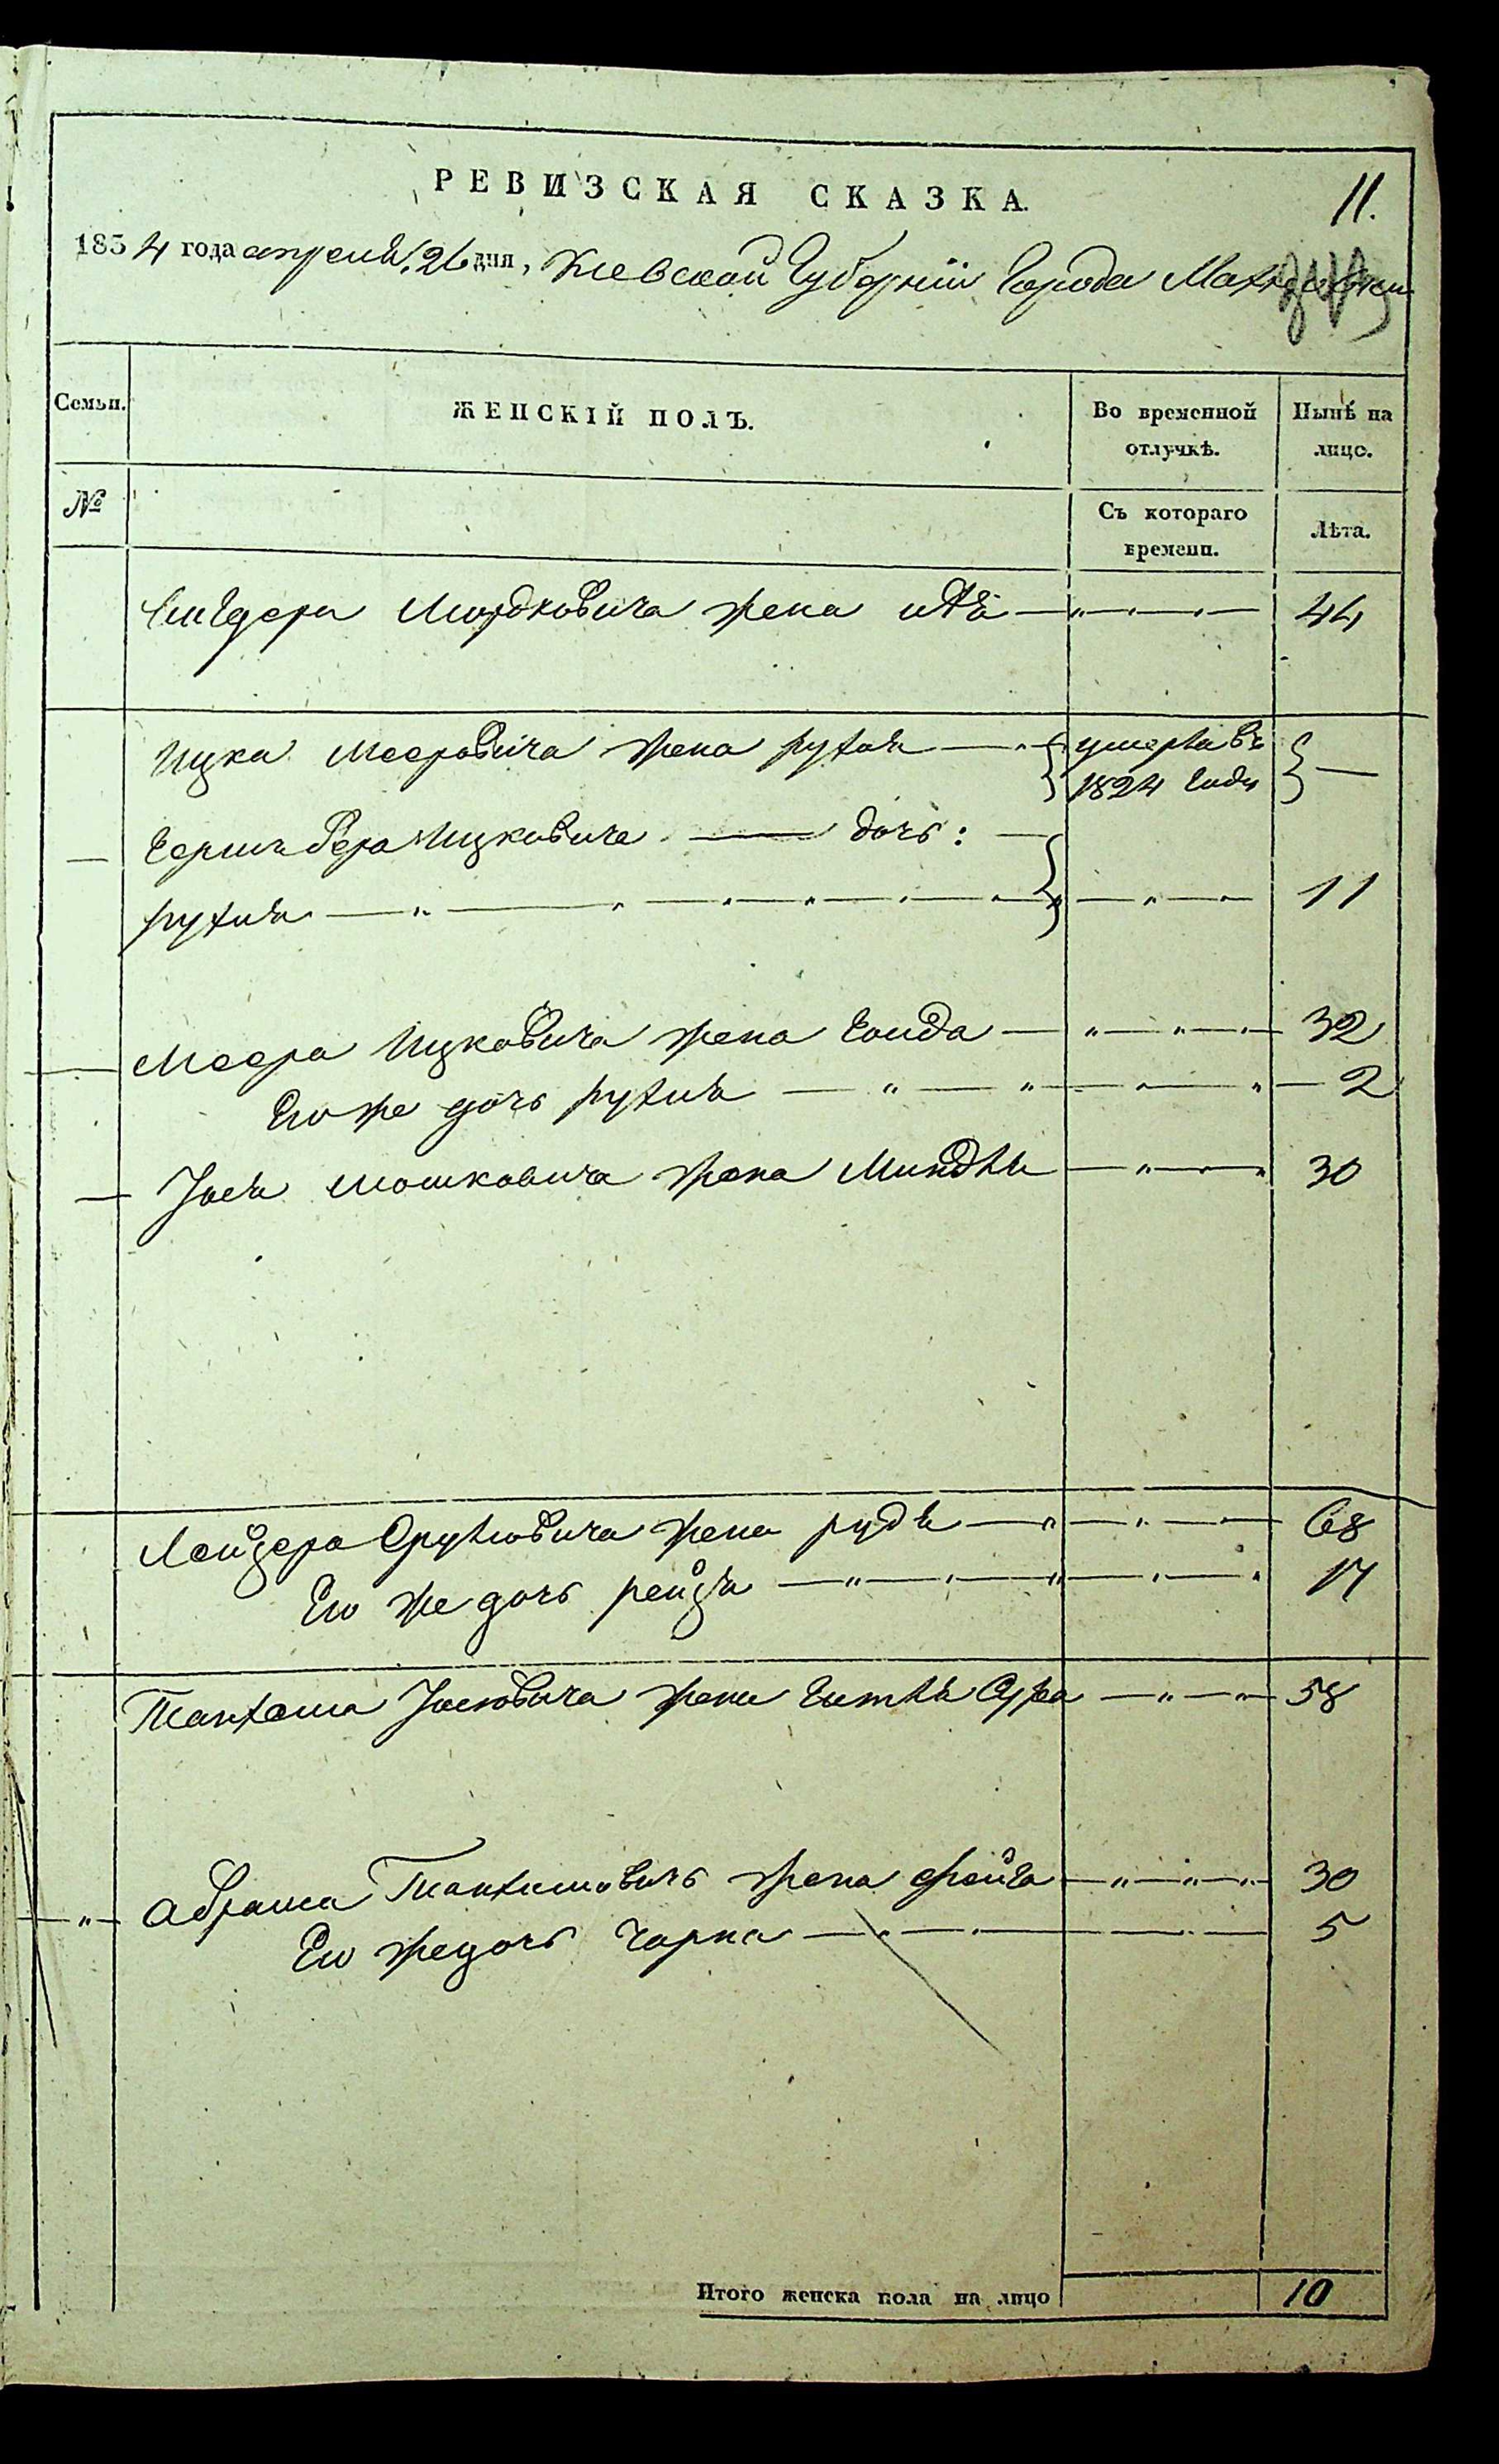 РЕВИЗСКАЯ СКАЗКА.
11.
1834 года апреля 26 дня, Киевской Губернии Города Махновки
Семьи.
ЖЕНСКІЙ ПОЛЪ.
Во временной отлучкѣ.
Нынѣ на лицо.
№
Съ котораго времени.
Лѣта.
Мордковича жена 44
Ицка Мееровича жена рухля умерла въ
1824 году —
Герш Бера Ицковича — дочь:
рухля 11
Меера Ицковича жена Голда 32
Его же дочь рухля 2
Іося Мошковича жена Миндля 30
Лейзера Срулювича жена рудя 68
Его же дочь рейзя 17
Танхома Іосювича жена Гитля Сура 58
Абрама Танхимовичь жена фейга 30
Его же дочь Чарна 5
Итого женска пола на лицо 10